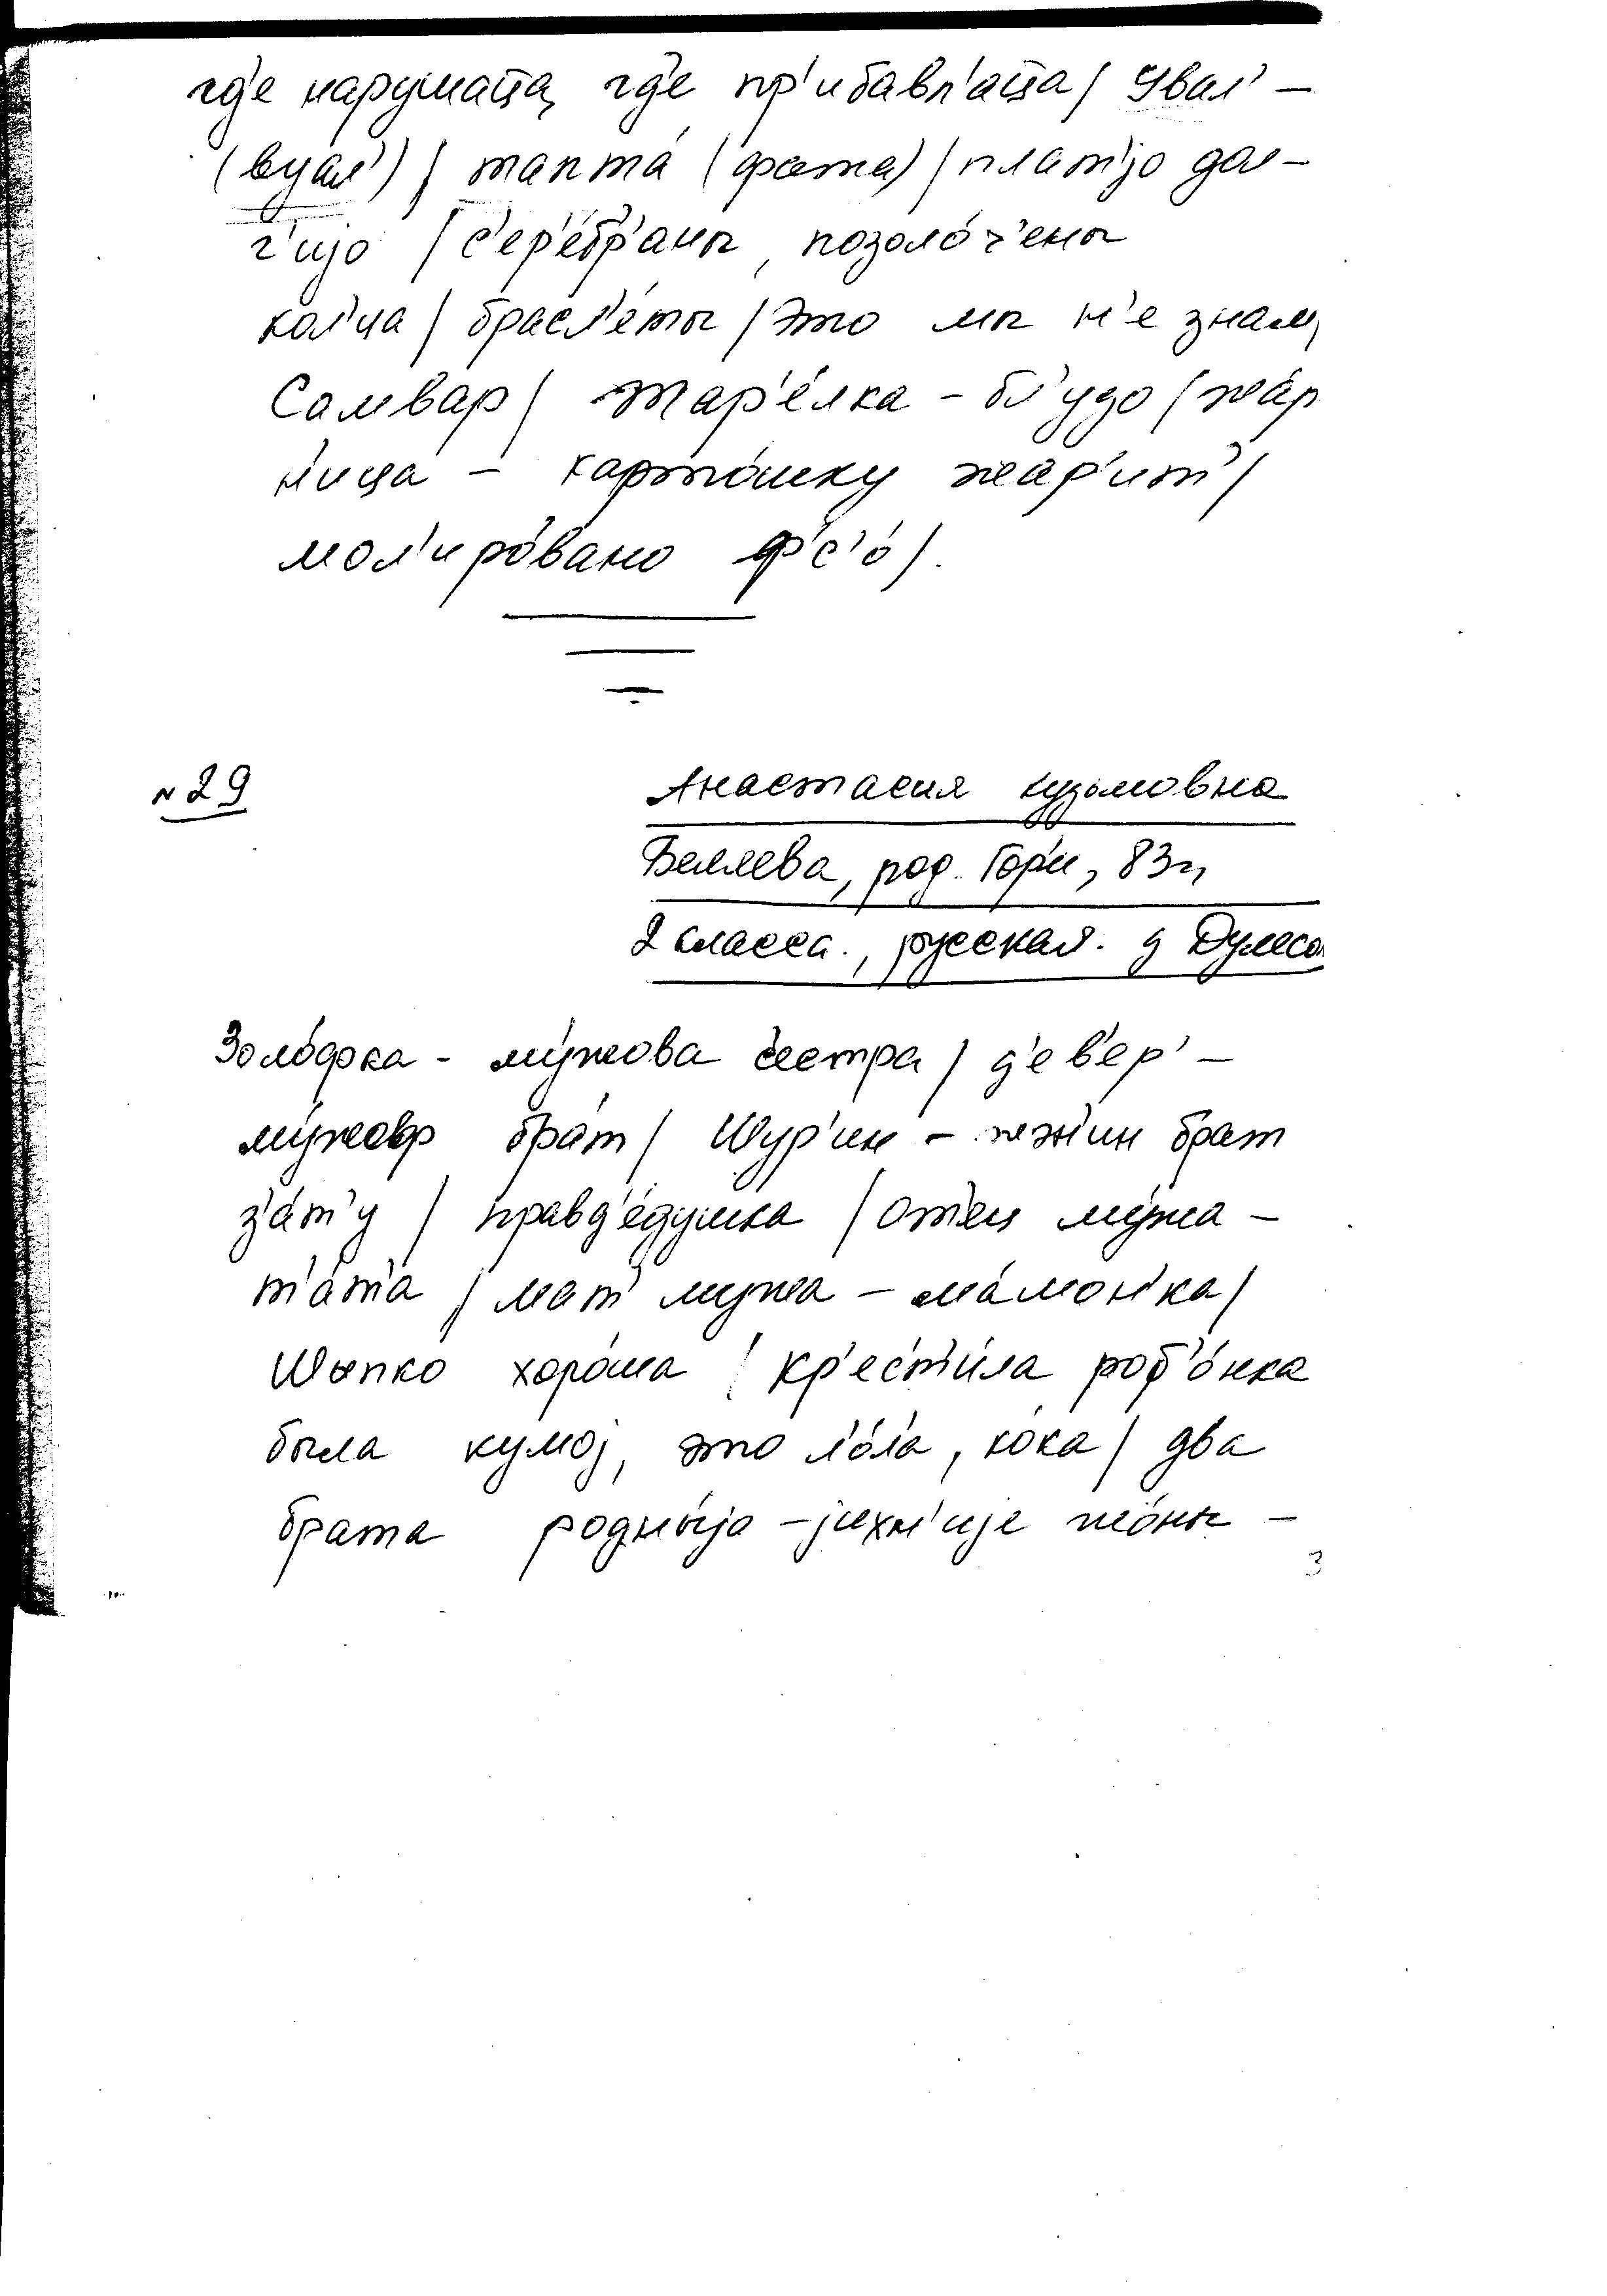 гд'е нарушаца, гд'е пр'ибавл'аца / Увал' –
(вуал') / тапта́ (фата) / плат'jо дол –
г'иjо / с'ер'е́бр'аны, позоло́ч'ены
кол'ца / брасл'е́ты / Это мы н'е знам,
Самвар / Тар'е́лка – бл'удо / жа́р
н'ица – карто́шку жа́р'ит' /
мол'иро́вано ф'с'о́ /.
№ 29
Анастасия Кузьмовна
Беляева, род. 83 г
2 класса., русская. д
Золо́фка – му́жова сестра / д'ев'ер' –
му́жоф бра́т / Шур'ин – жэн'ин брат
з'а́т'у / правд'е́душка / От'ец му́жа –
т'а́т'а / мат' мужа – ма́мон'ка /
Шыпко хоро́ша / кр'ест'и́ла роб'о́нка
была кумоj, это л'о́л'а, ко́ка / два
брата родны́jа – jихн'иjе жо́ны –
3